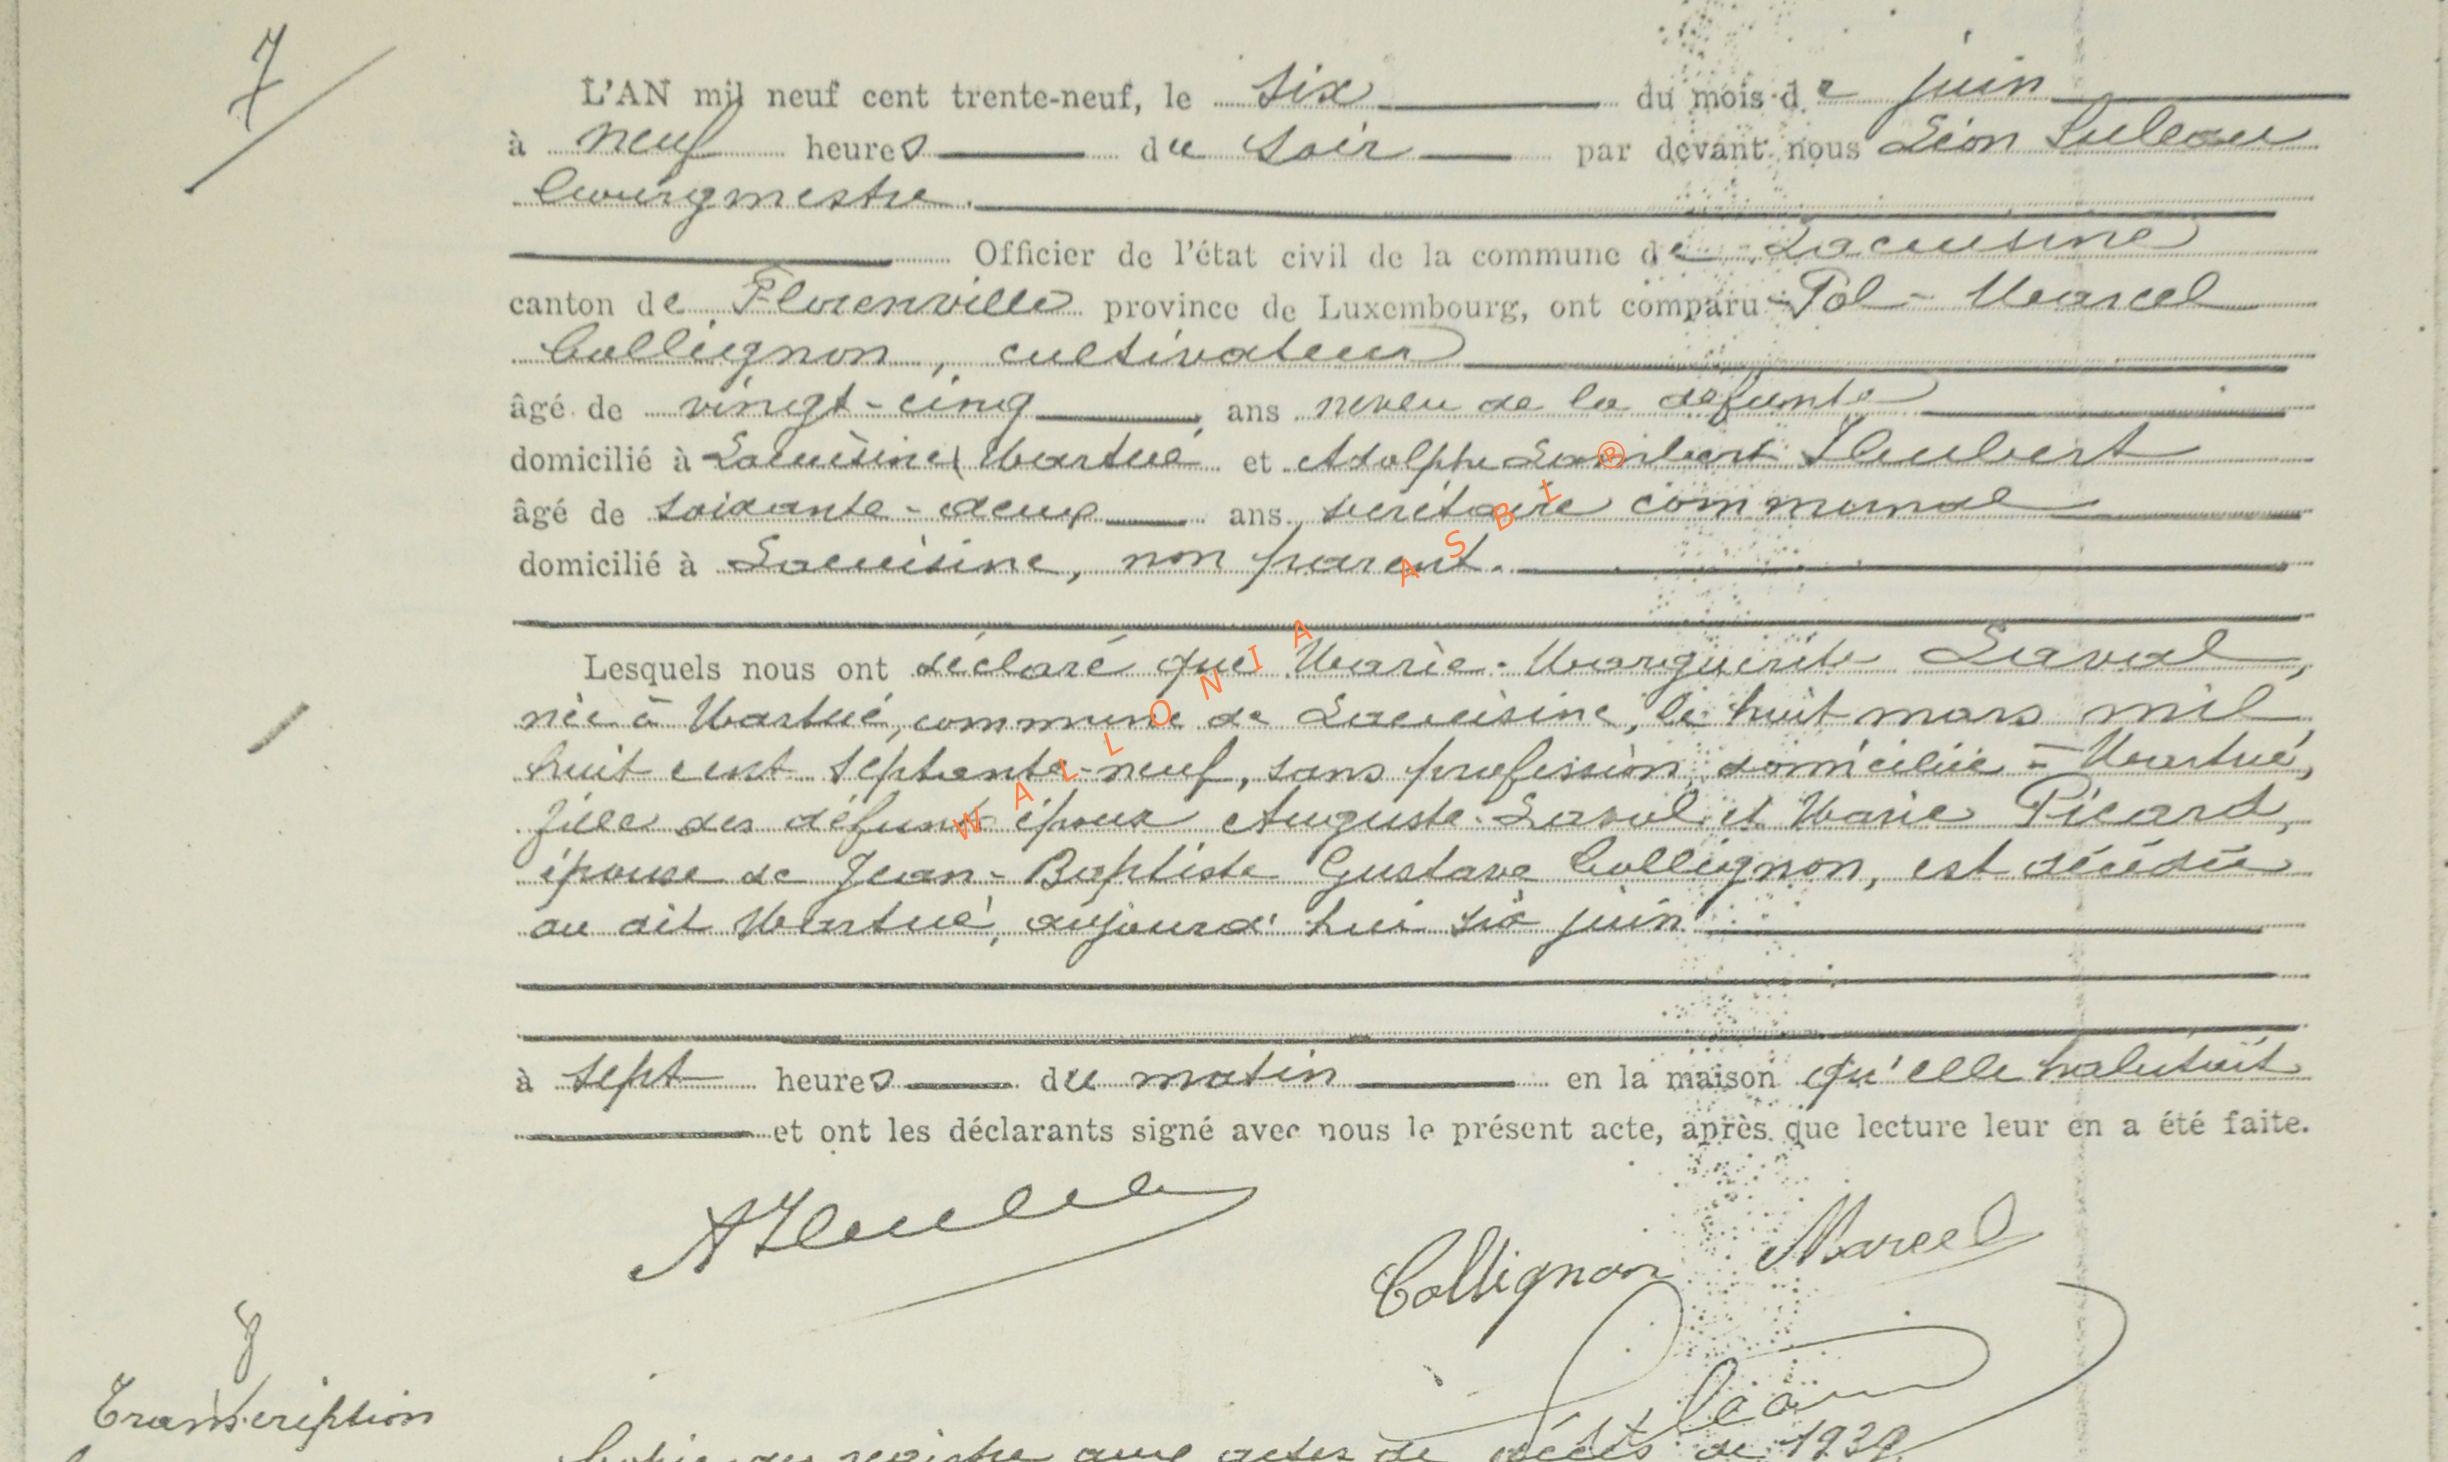 7
L'AN mil neuf cent trente-neuf, le six du mois de juin
à neuf heures du soir par devant nous Léon Suleau
bourgmestre.
Officier de l'état civil de la commune de Lacuisine
canton de Florenville province de Luxembourg, ont comparu Pol-Marcel
Collignon, cultivateur
âgé de vingt-cinq ans neveu de la défunte
domicilié à Lacuisine (Martué et Adolphe Lambert Hubert
âgé de soixante-deux ans, secrétaire communal
domicilié à Lacuisine, non parent.
Lesquels nous ont déclaré que Marie-Marguerite Laval,
née à Martué, commune de Lacuisine, le huit mars mil
huit cent septante-neuf, sans profession, domiciliée à Martué,
fille des défunts époux Auguste Laval et Marie Picard,
épouse de Jean-Baptiste Gustave Collignon, est décédée
au dit Martué, aujourd'hui six juin
à sept heures du matin en la maison qu'elle habitait
et ont les déclarants signé avec nous le présent acte, après que lecture leur en a été faite.
A Hubert
Collignon Marcel
8
Transcription
Copie du registre aux actes de décès de 1939
WALLONIA ASBL ®